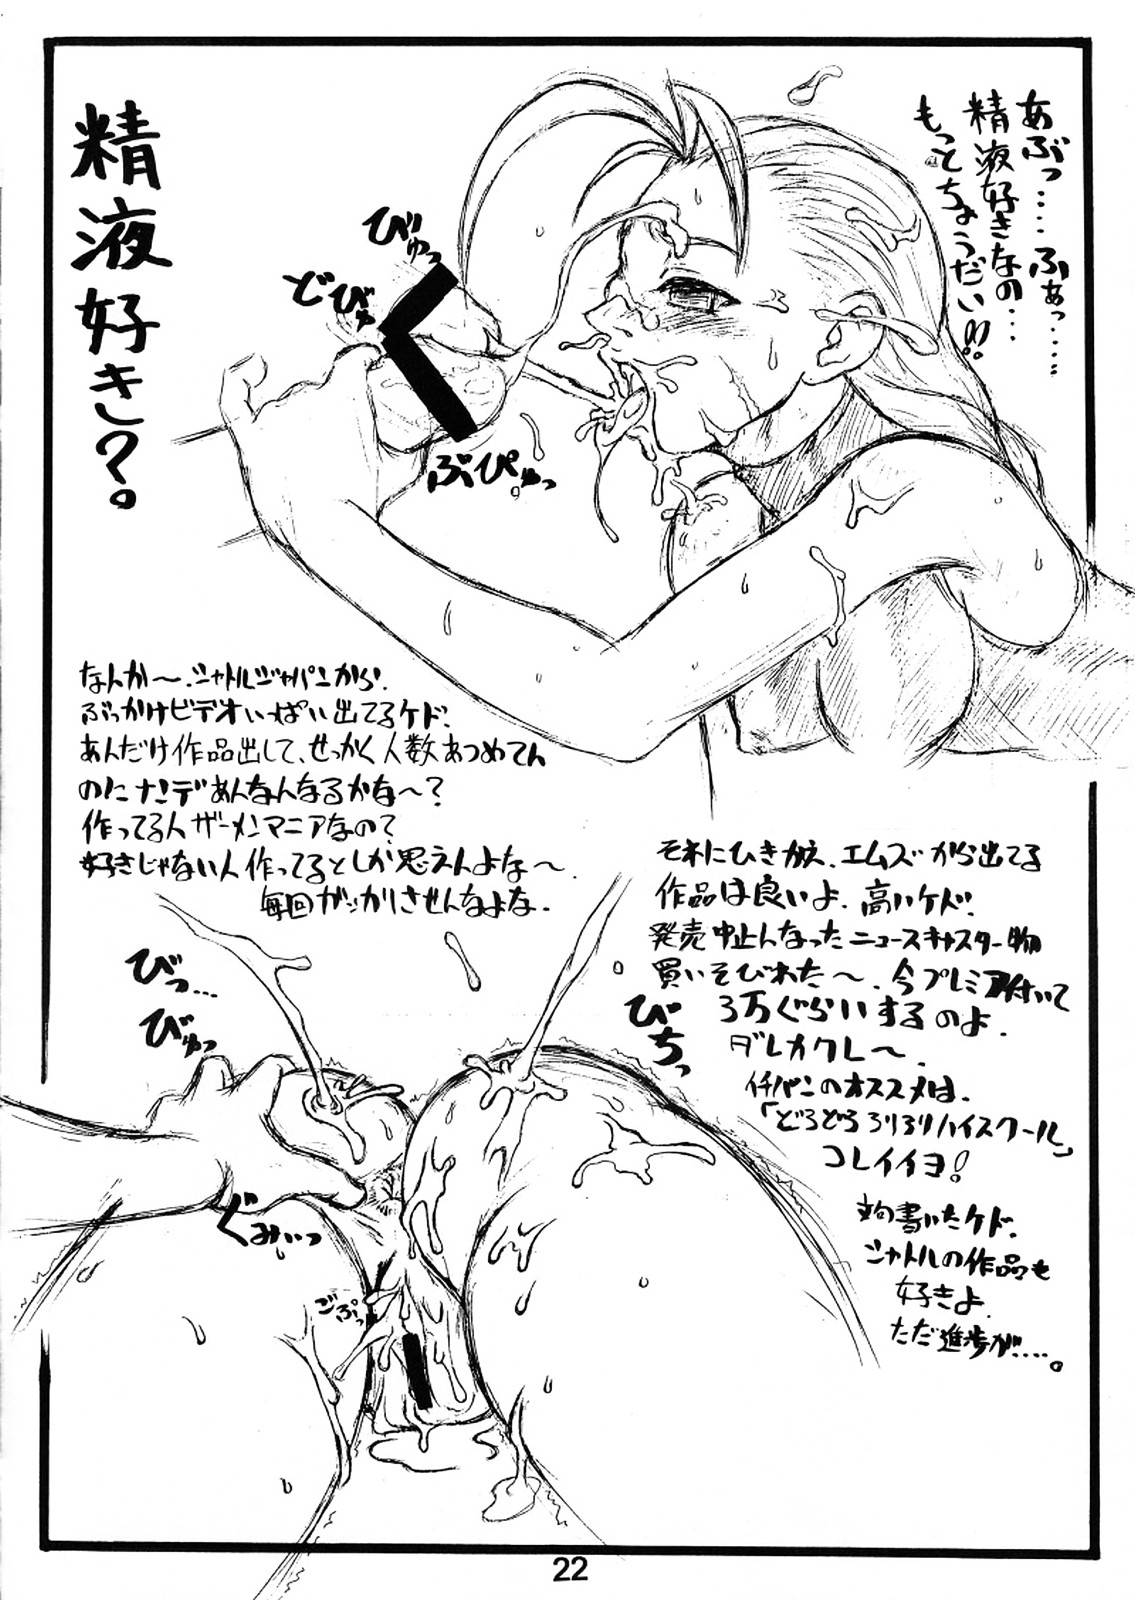 あぶっ‥‥ふぁっ‥‥
精液好きなの‥‥
もっとちょうだい!!
精液好き?。
びゅっ
どびゅ
ぶぴゅっ
なんか〜.シャトルジャパンから.
ぶっかけビデオいっぱい出てるケド.
あんだけ作品出して、せっかく人数あつめてん
のにナンデあんなんなるかな〜?
作ってる人ザーメンマニアなの?
好きじゃない人作ってるとしか思えんよな〜.
毎回ガッカリさせんなよな.
それにひきかえ、エムズから出てる
作品は良いよ.高いケド.
発売中止んなったニュースキャスター物
買いそびれた〜.今プレミア付いて
3万ぐらいするのよ.
ダレカクレ〜.
イチバンのオススメは.
「どろどろろりろりハイスクール」
コレイイヨ!
書いたケド.
シャトルの作品も
好きよ.
ただ進歩が‥‥。
びっ…
びゅっ
びちっ
ぐみぃっ
ごぷっ
22